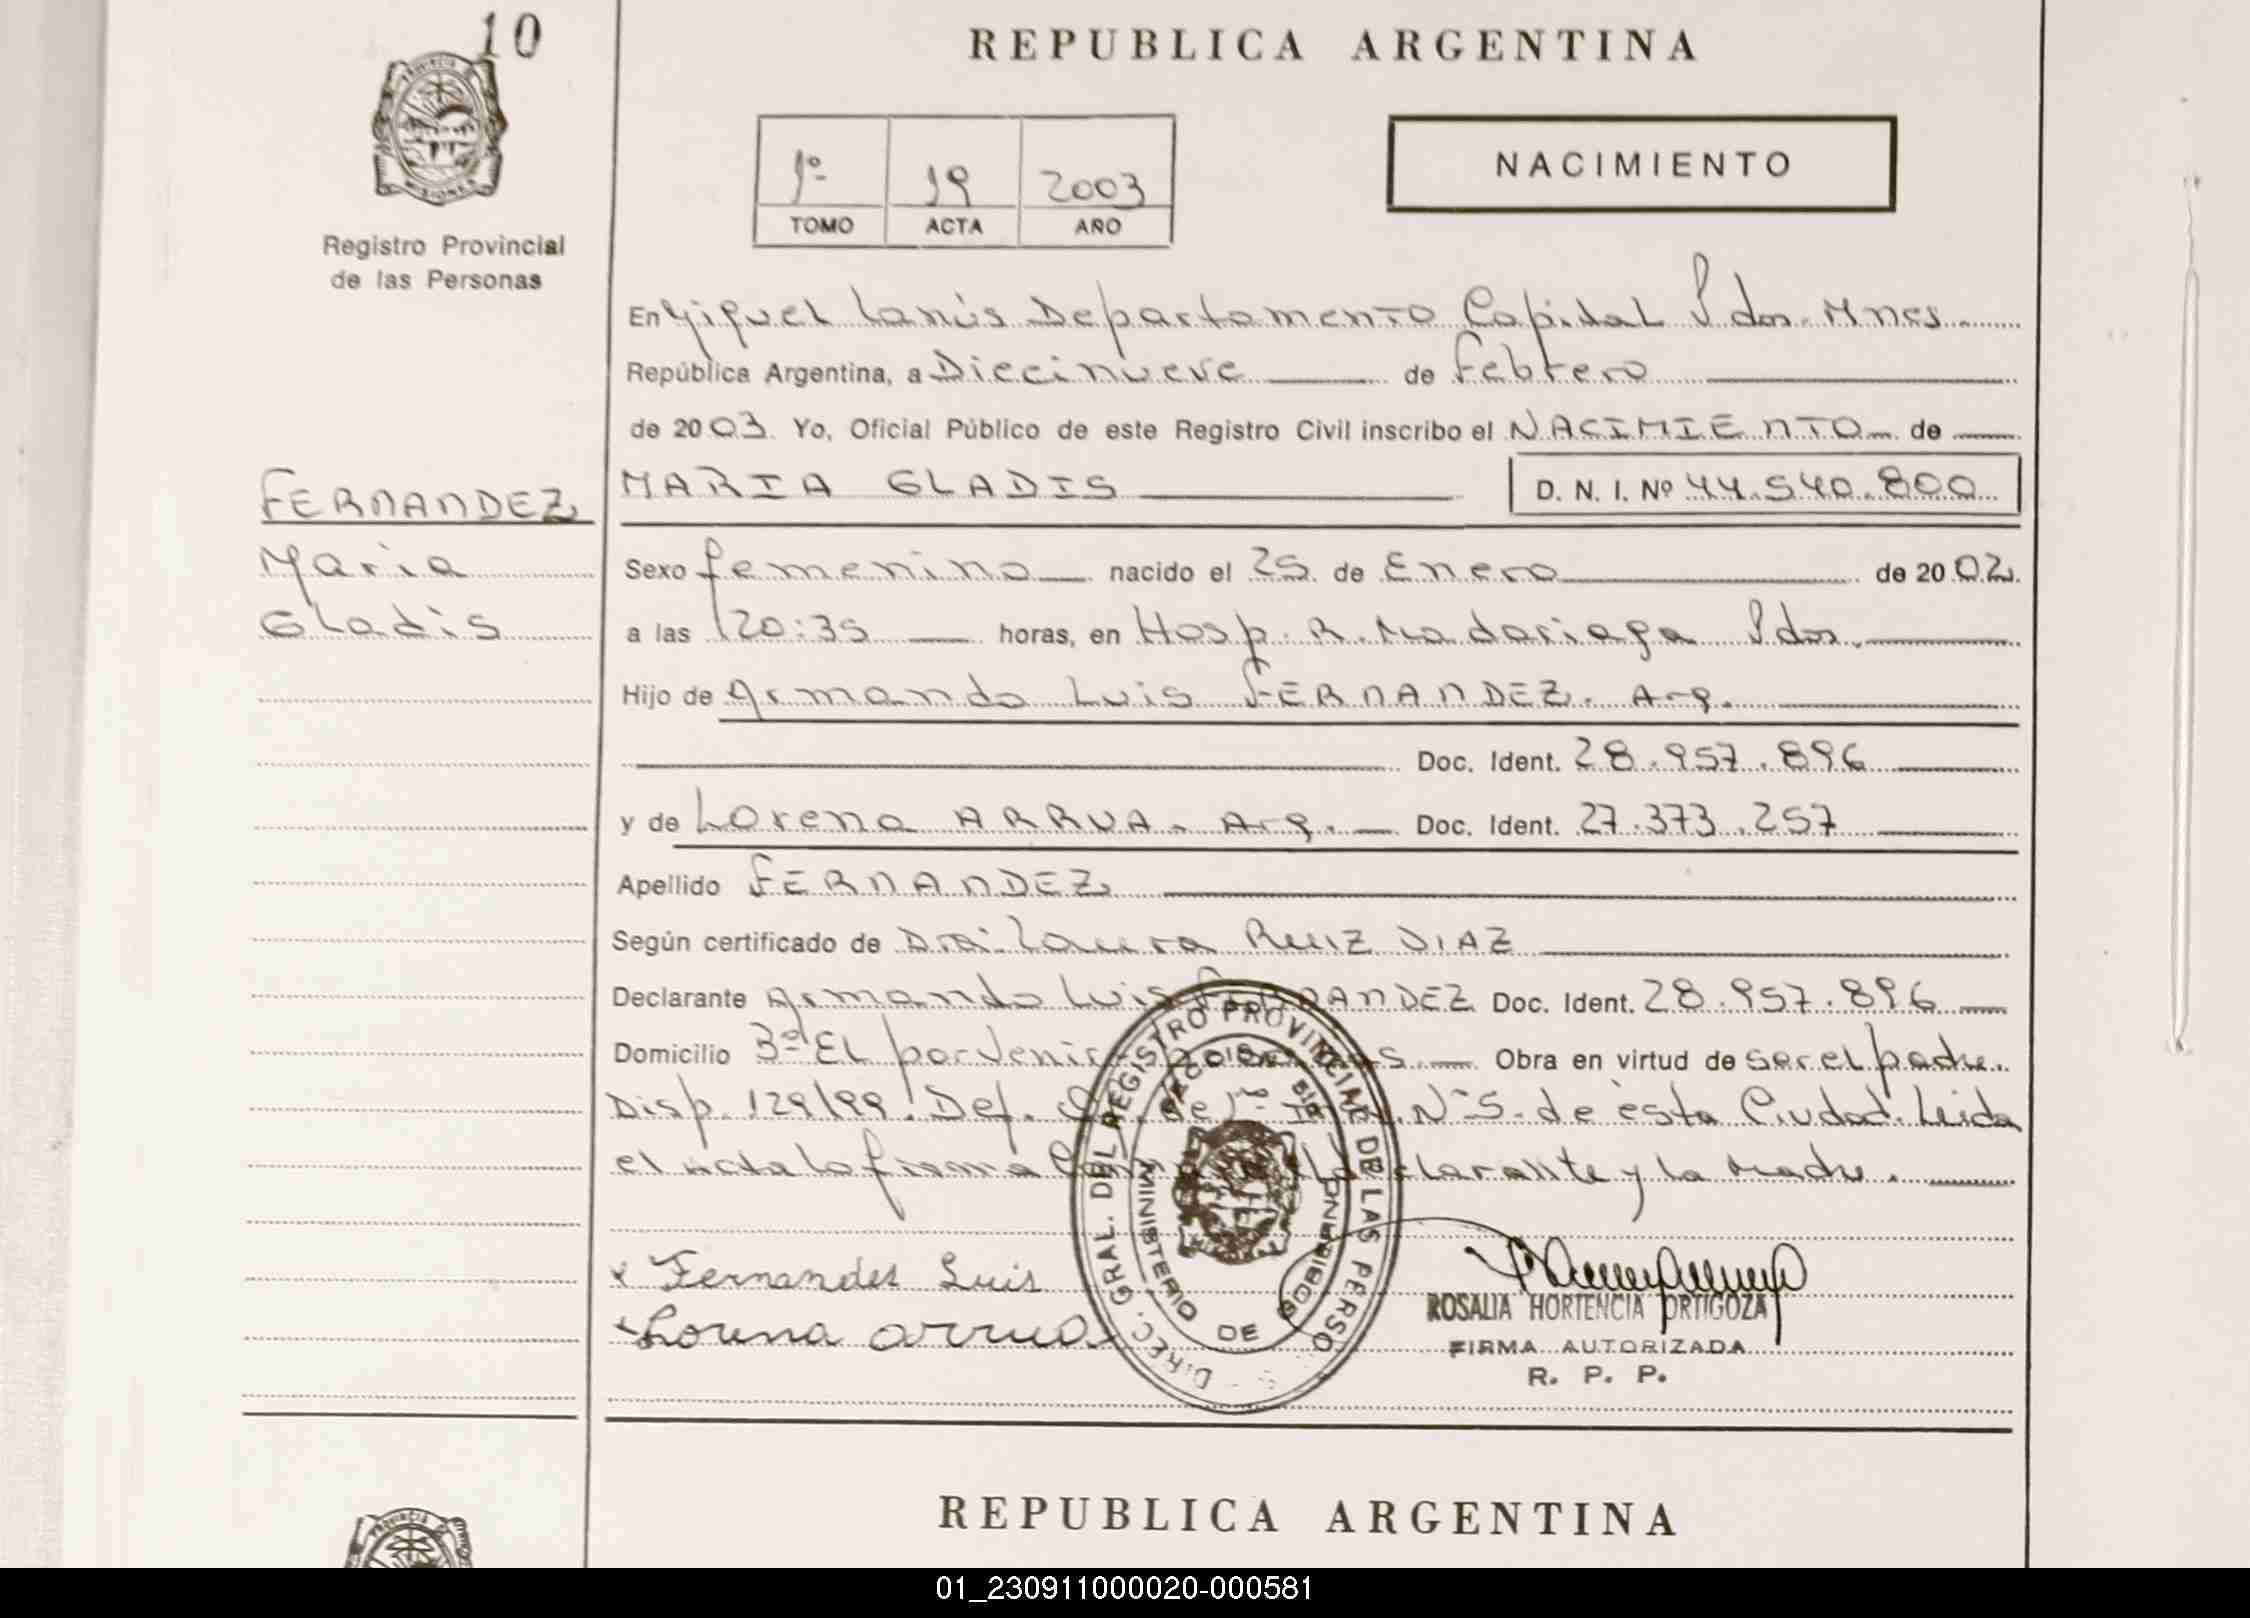 10
REPUBLICA ARGENTINA
PROVINCIA DE MISIONES
Registro Provincial
de las Personas
1º 19 2003
TOMO ACTA AÑO
NACIMIENTO
En Miguel Lanús Departamento Capital Pdas. Mnes
República Argentina, a Diecinueve de Febrero
de 2003. Yo, Oficial Público de este Registro Civil inscribo el NACIMIENTO de
MARIA GLADIS D. N. I. Nº 44.540.800
FERNANDEZ
Maria
Gladis
Sexo femenino nacido el 25 de Enero de 2002
a las 20:35 horas, en Hosp. R. Madariaga Pdas.
Hijo de Armando Luis FERNANDEZ. Arg.
Doc. Ident. 28.957.896
y de Lorena ARRUA. Arg. Doc. Ident. 27.373.257
Apellido FERNANDEZ
Según certificado de Dra. Laura RUIZ DIAZ
Declarante Armando Luis FERNANDEZ Doc. Ident. 28.957.896
Domicilio Bº El porvenir Obra en virtud de ser el padre.
Disp. 129/99. Def. de 1ra Nº 5. de esta Ciudad. Leida
el acta la firma el declarante y la madre.
Fernandes Luis
Lorena arrua
DIREC. GRAL. DEL REGISTRO PROVINCIAL DE LAS PERSO
MINISTERIO DE GOBIERNO
ROSALIA HORTENCIA ORTIGOZA
FIRMA AUTORIZADA
R. P. P.
REPUBLICA ARGENTINA
PROVINCIA
01_230911000020-000581